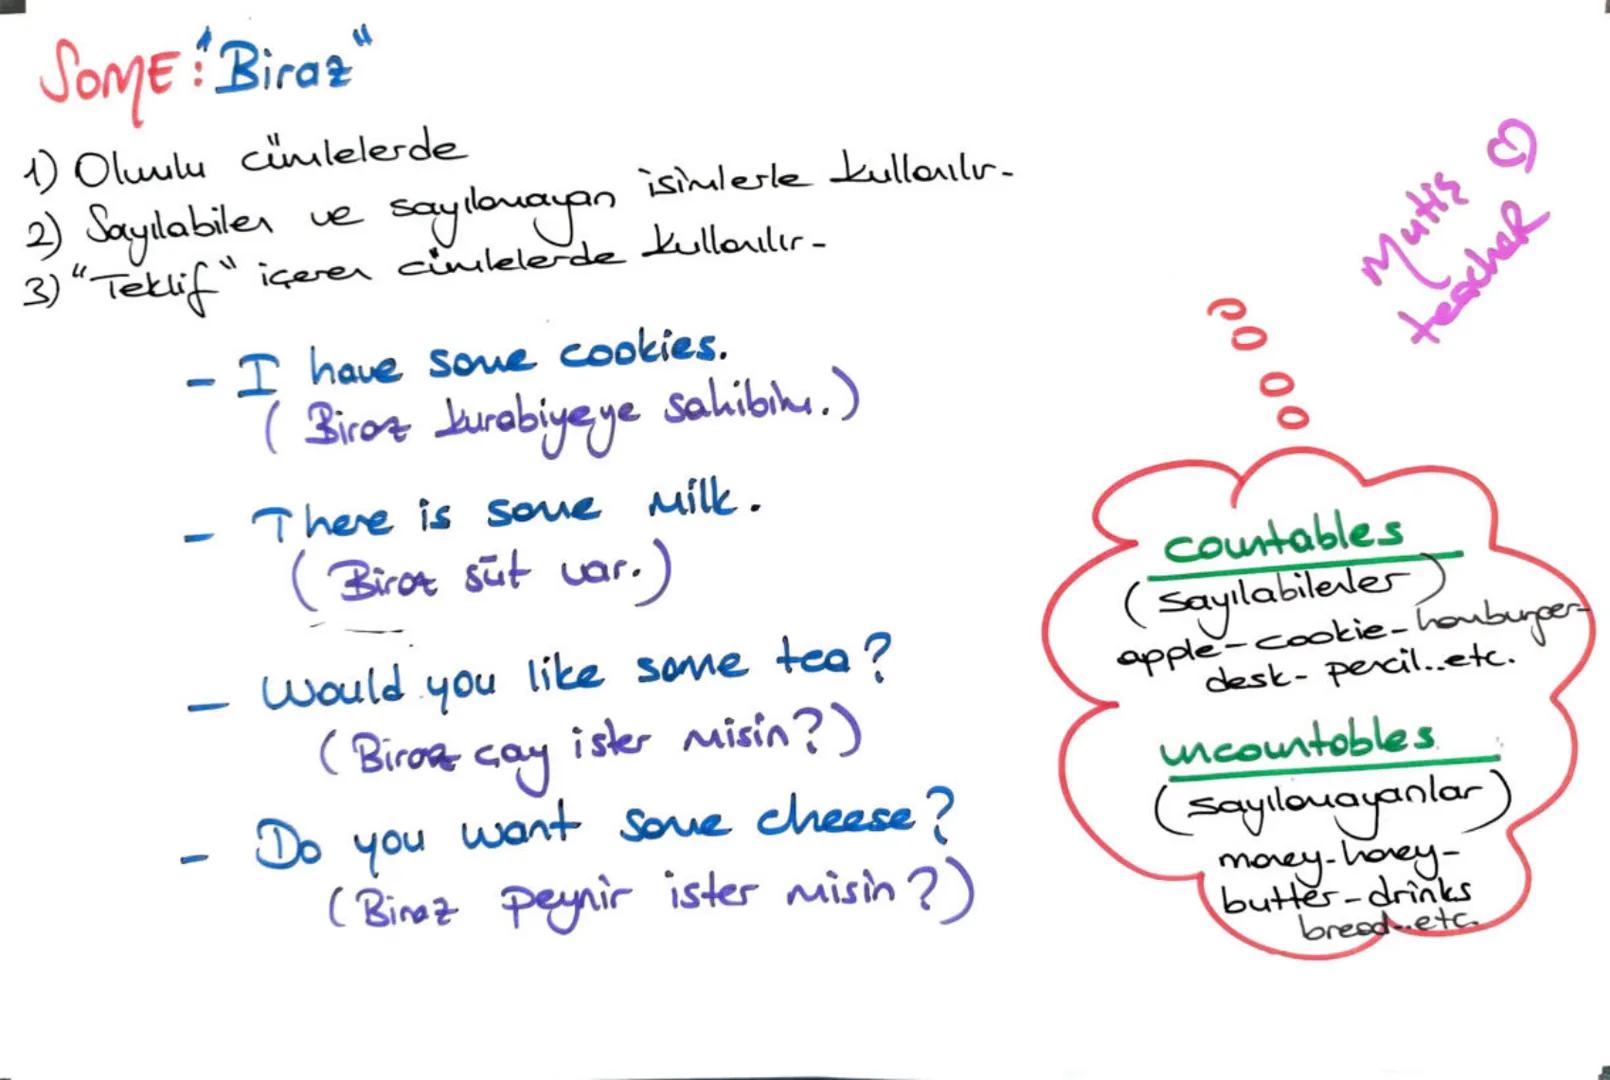 SOME: "Biraz"
1) Olumlu cümlelerde
2) Sayılabilen ve sayılamayan isimlerle kullanılır-
3) "Teklif" içeren cümlelerde kullanılır-
- I have some cookies.
( Biraz kurabiyeye sahibim.)
- There is some milk.
( Biraz süt var.)
- Would you like some tea?
( Biraz çay ister misin?)
- Do you want some cheese?
( Biraz peynir ister misin?)
Mutiş
teacher
countables
( sayılabilenler )
apple-cookie-hamburger-
desk- pencil..etc.
uncountables
( sayılamayanlar )
money-honey-
butter-drinks
bread..etc.